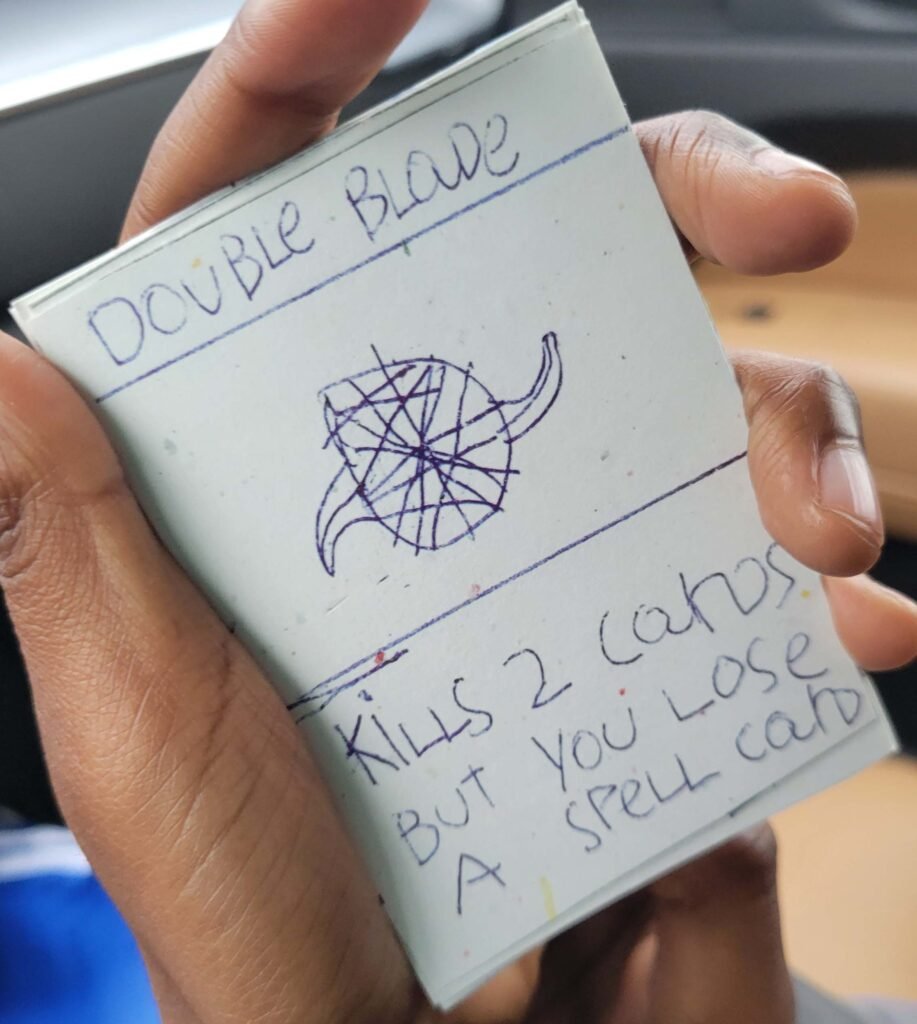 DOUBLe BLADe
KiLLS 2 CaRDS
BUT YOU LOSe
A SPeLL CaRD